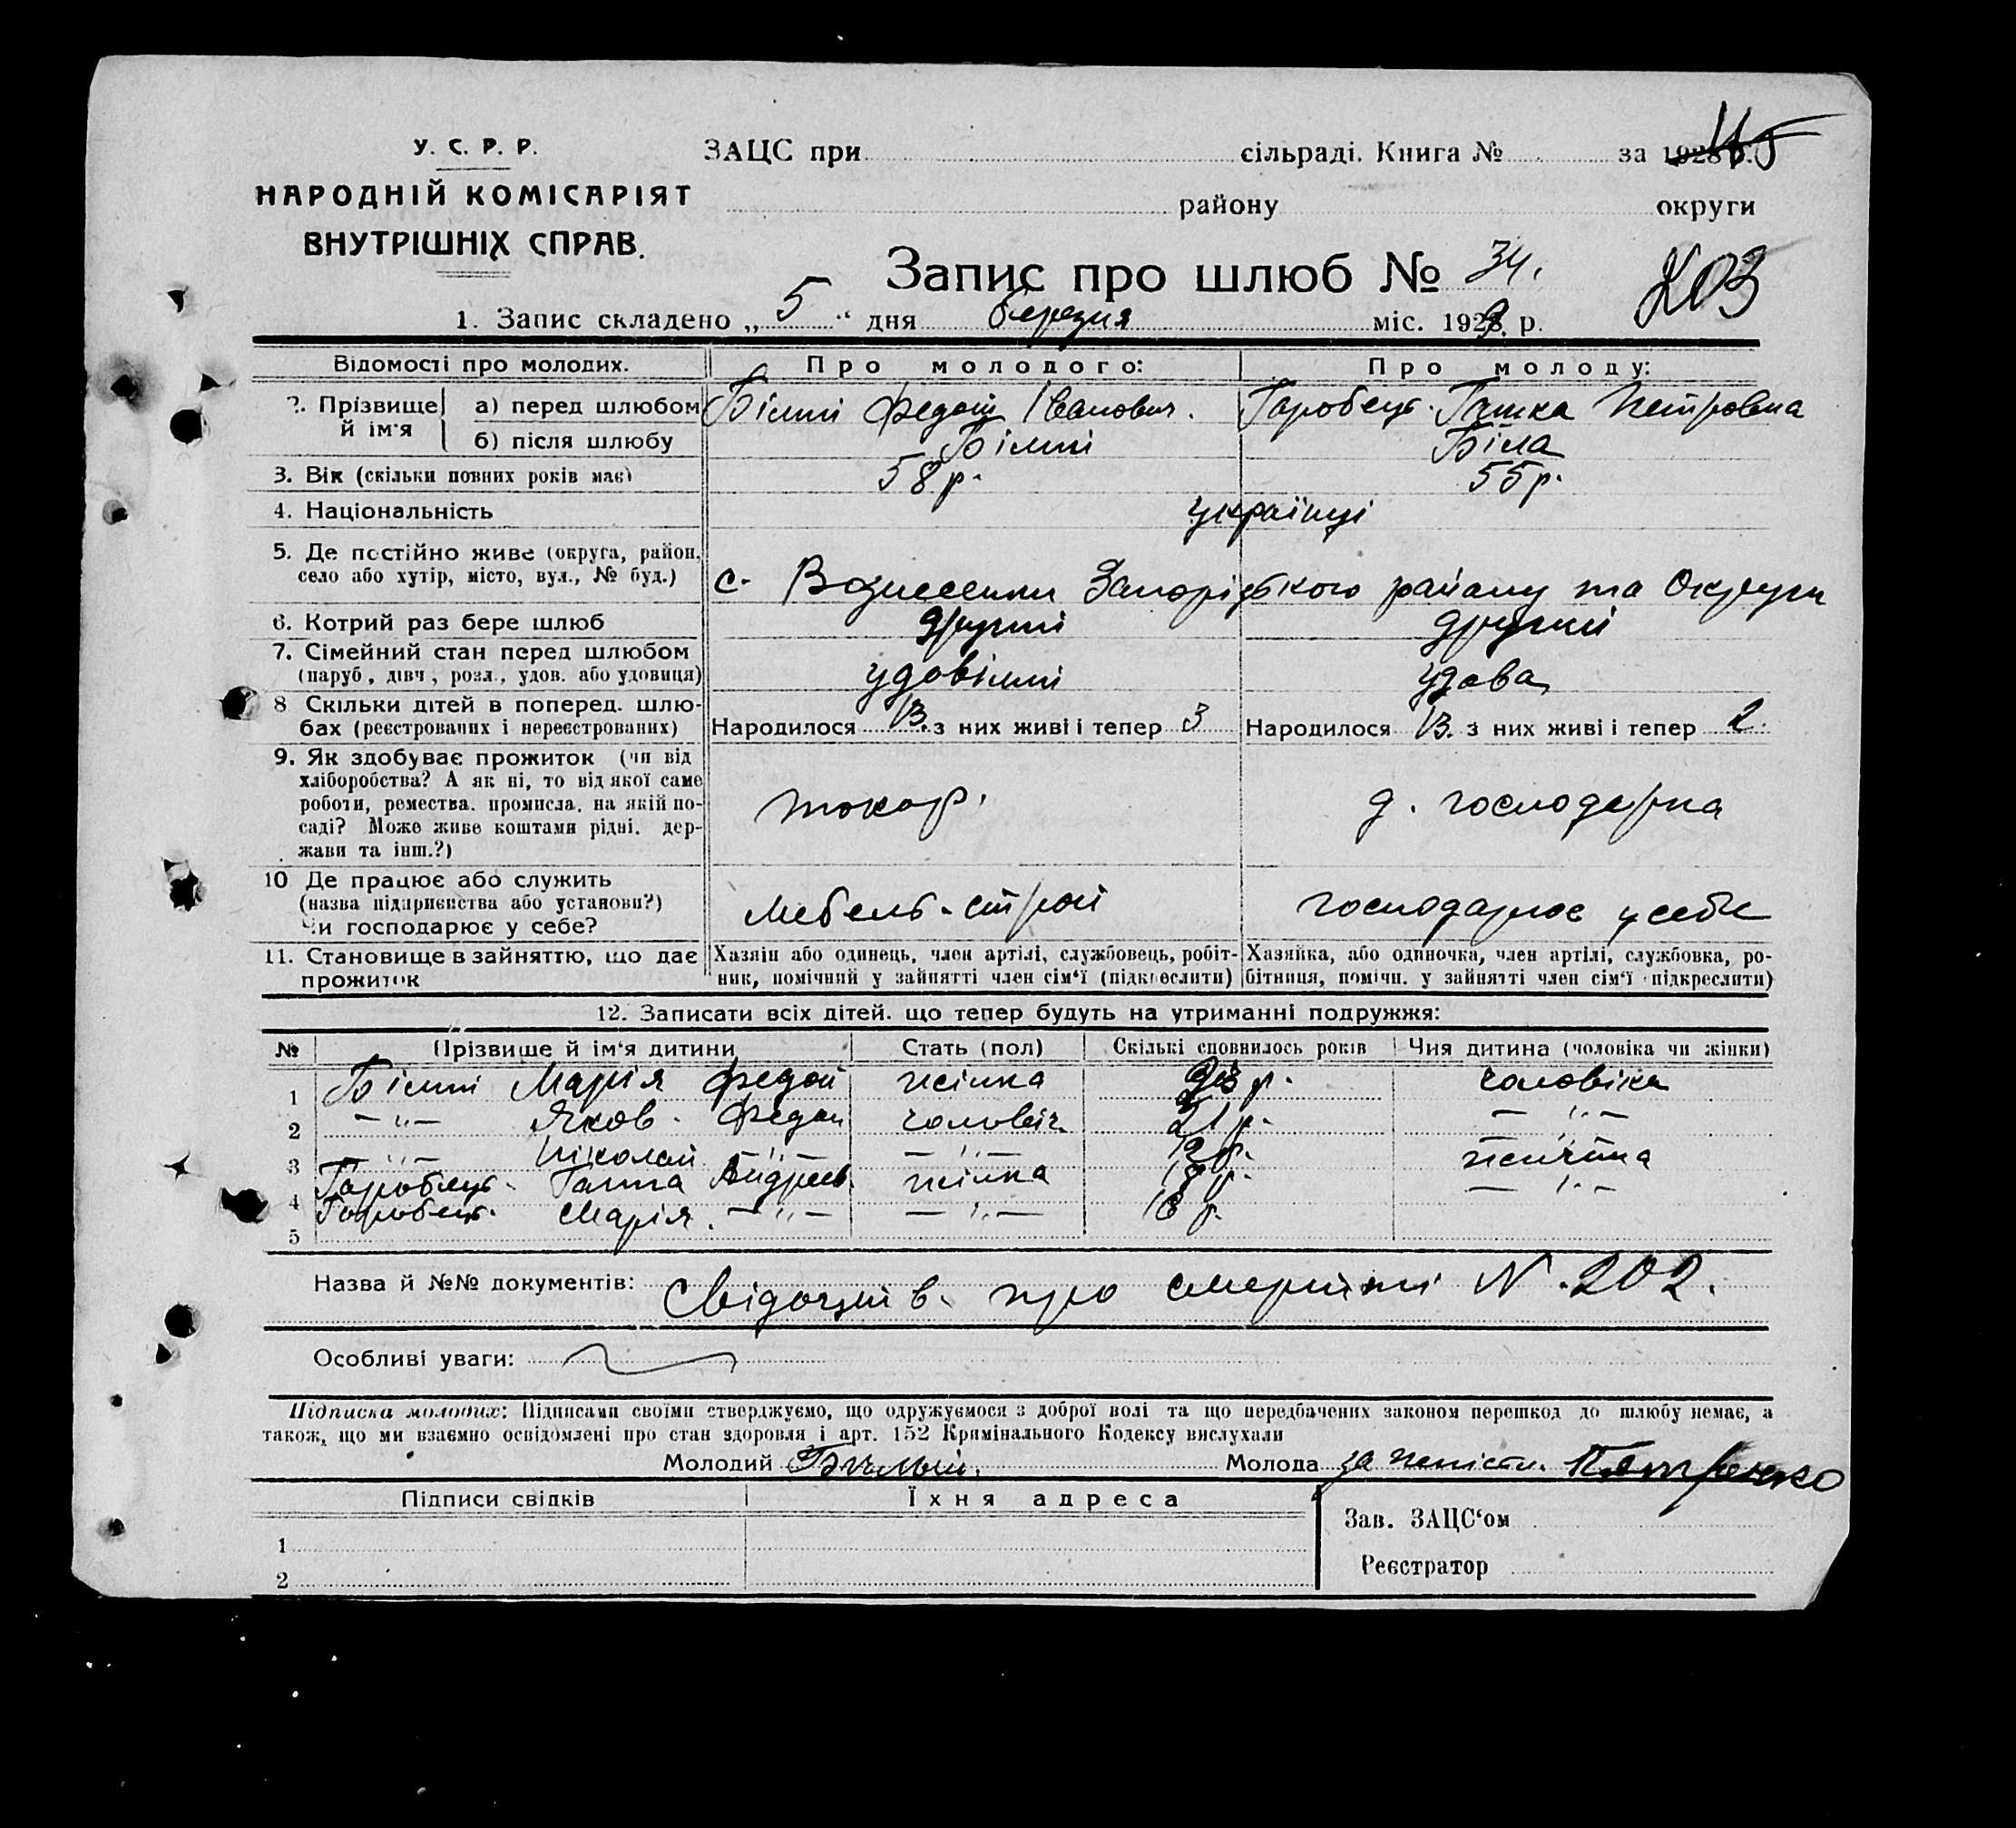 У. С. Р. Р.
НАРОДНІЙ КОМІСАРІЯТ
ВНУТРІШНІХ СПРАВ.
ЗАЦС при сільраді. Книга № за 1928
району округи
Запис про шлюб № 34.
403
1. Запис складено „ 5 “ дня березня міс. 1929 р.
Відомості про молодих. Про молодого: Про молоду:
2. Прізвище й ім'я а) перед шлюбом Білий Федот Іванович. Горобець Ганка Петровна
б) після шлюбу Білий Біла
3. Вік (скільки повних років має) 58 р. 55 р.
4. Національність українці
5. Де постійно живе (округа, район, село або хутір, місто, вул., № буд.) с. Вознесенки Запорізького району та Округи
6. Котрий раз бере шлюб другий другий
7. Сімейний стан перед шлюбом (паруб., дівч., розл., удов. або удовиця) удовілий удова
8 Скільки дітей в поперед. шлюбах (реєстрованих і нереєстрованих) Народилося 13. з них живі і тепер 3 Народилося 13. з них живі і тепер 2.
9. Як здобуває прожиток (чи від
хліборобства? А як ні, то від якої саме
роботи, ремества, промисла, на якій по-
саді? Може живе коштами рідні, дер-
жави та інш.?) токар. д. господарка
10 Де працює або служить
(назва підприємства або установи?)
Чи господарює у себе? Мебель-строй господарює у себе
11. Становище в зайняттю, що дає прожиток
Хазяін або одинець, член артілі, службовець, робіт-
ник, помічний у зайнятті член сім‘ї (підкреслити)
Хазяйка, або одиночка, член артілі, службовка, ро-
бітниця, помічн. у зайнятті член сім‘ї (підкреслити)
12. Записати всіх дітей, що тепер будуть на утриманні подружжя:
№ Прізвище й ім‘я дитини Стать (пол) Скількі сповнилось років Чия дитина (чоловіка чи жінки)
1 Білий Марія Федот жінка р. чоловіка
2 —„— Яков Федот чоловіч. 21 р. —„—
3 —„— Ніколай —„— —„—
4 Горобець Ганна Андреев. жінка —„—
Горобець. Марія. —„— —„— 16 р.
5
Назва й №№ документів: Свідоцтв. про смерти N. 202.
Особливі уваги:
Підписка молодих: Підписами своїми стверджуємо, що одружуємося з доброї волі та що передбачених законом перешкод до шлюбу немає, а
також, що ми взаємно освідомлені про стан здоровля і арт. 152 Кримінального Кодексу вислухали
Молодий Билый. Молода за неписьм. Петренко
Підписи свідків Їхня адреса
Зав. ЗАЦС‘ом
1
Реєстратор
2